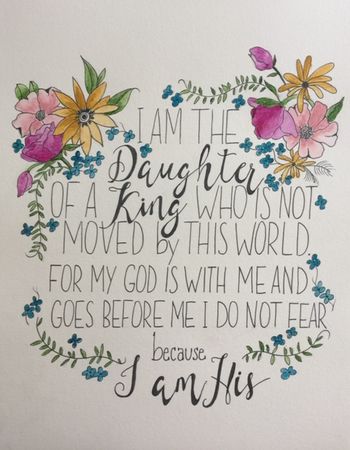 I AM THE
Daughter
OF A King WHO IS NOT
MOVED by THIS WORLD
FOR MY GOD IS WITH ME AND
GOES BEFORE ME I DO NOT FEAR
because
I am His